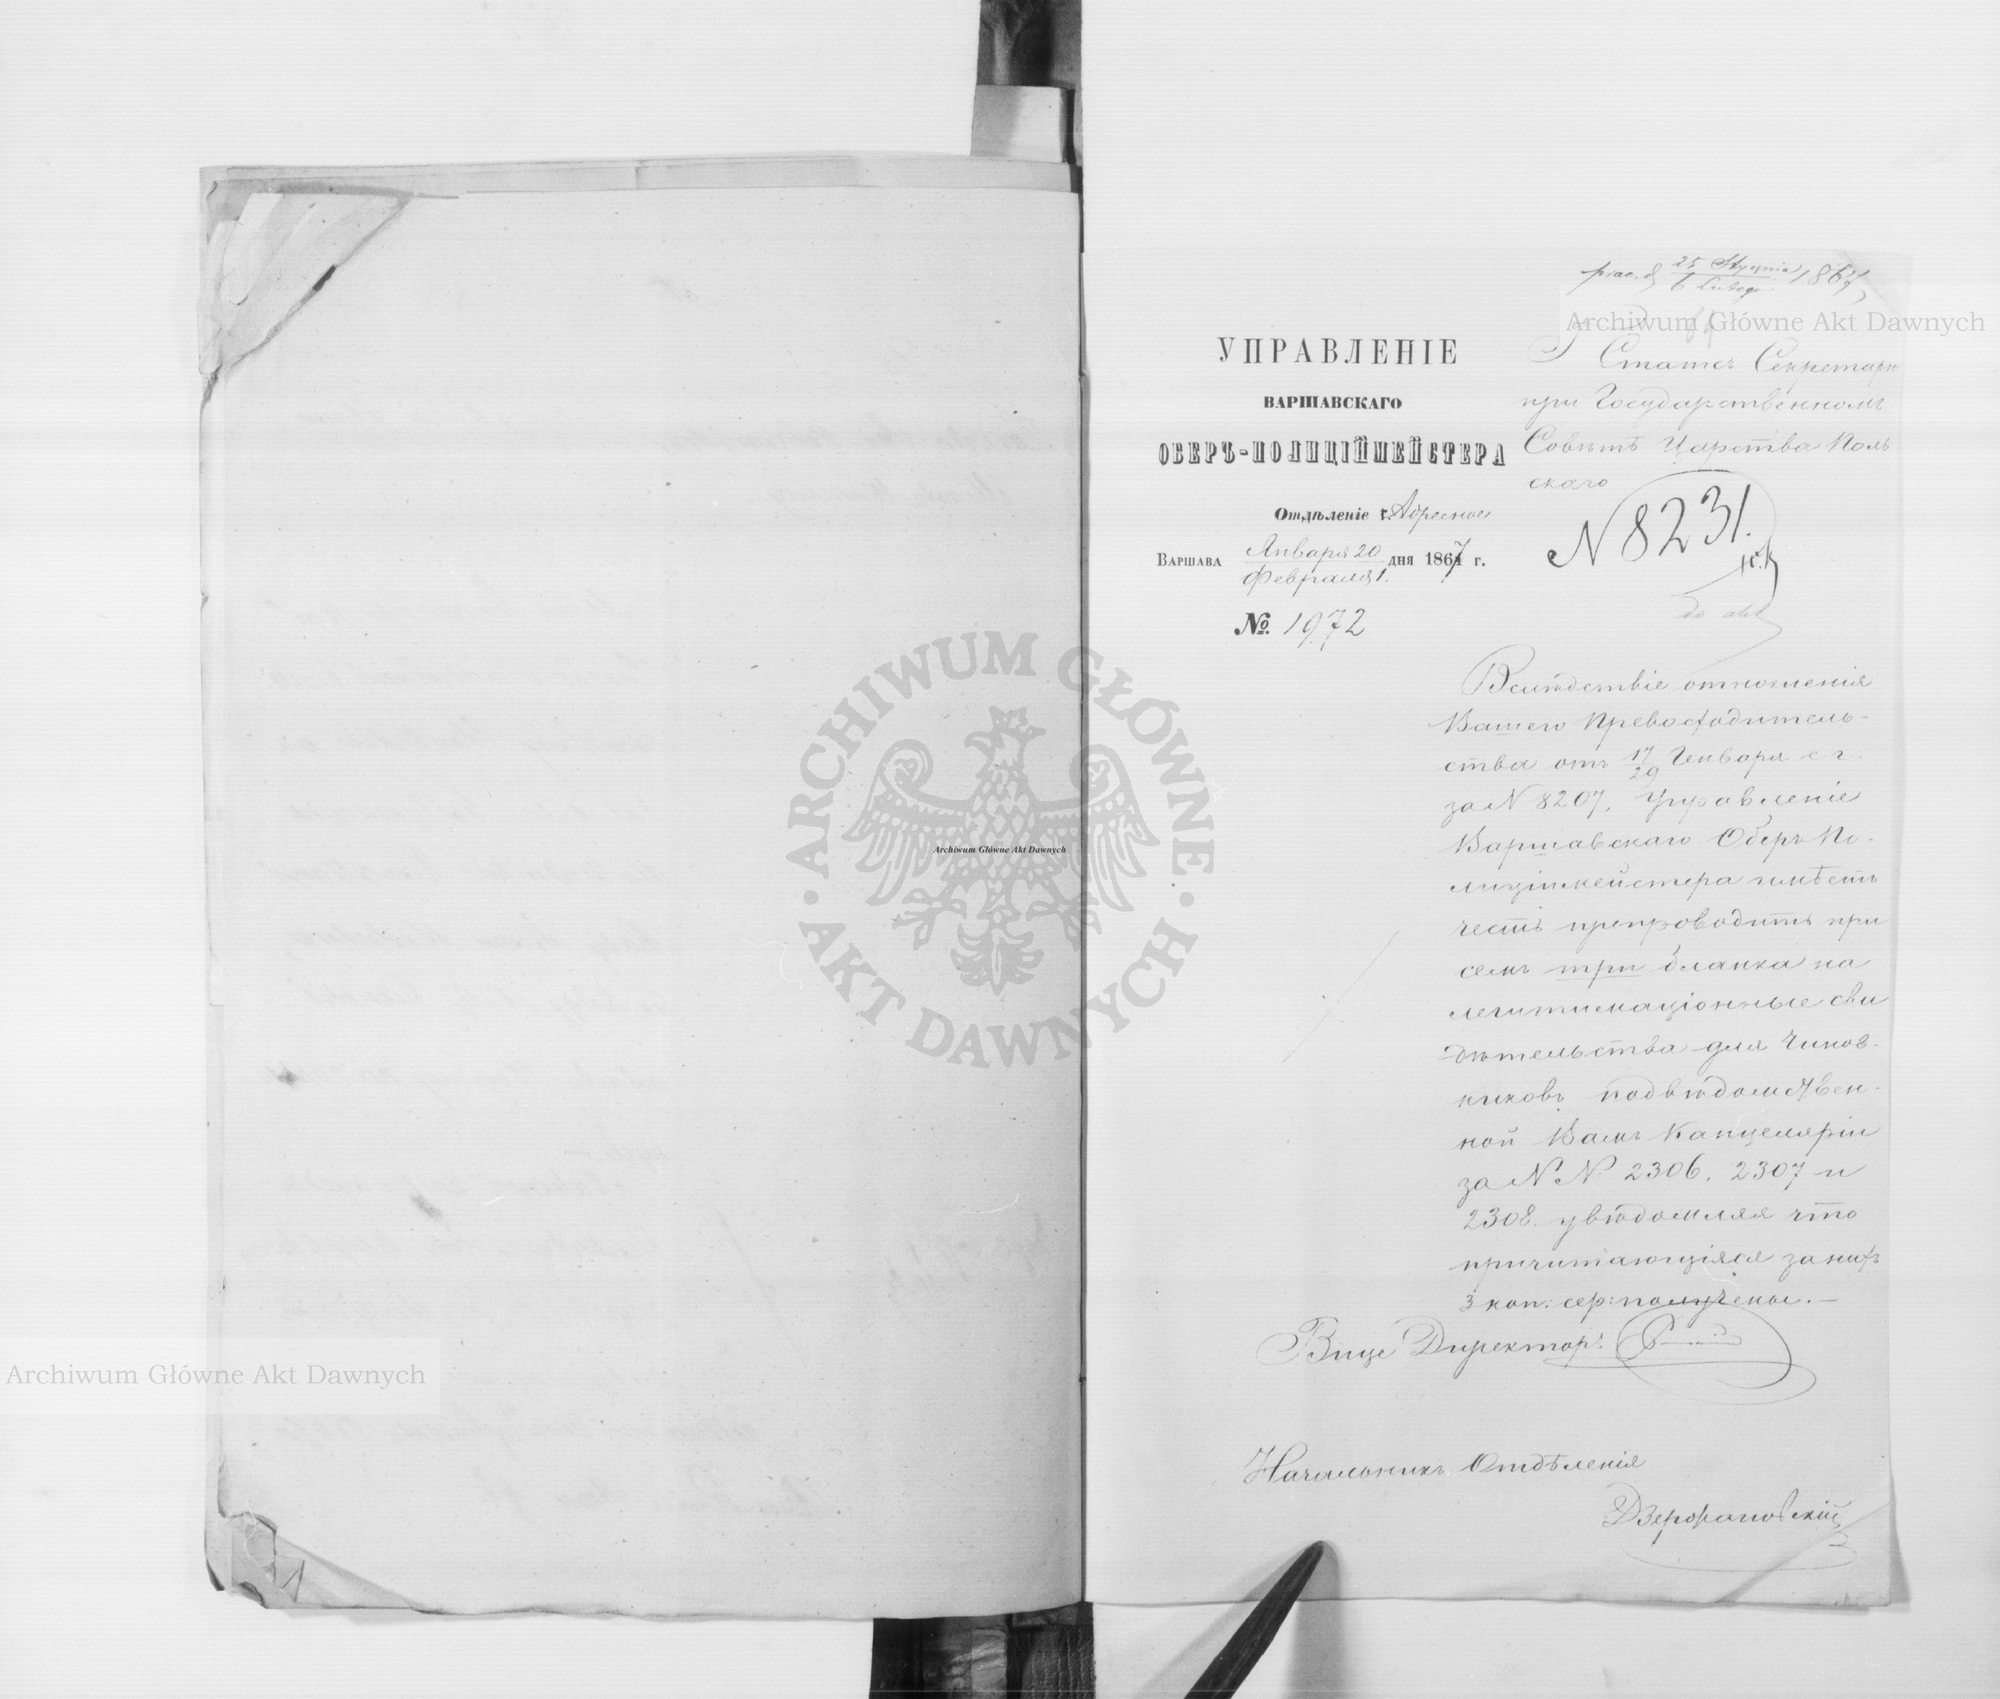 praes. d. 25 Stycznia / 6 Lutego 1867
Archiwum Główne Akt Dawnych
УПРАВЛЕНІЕ
ВАРШАВСКАГО
ОБЕРЪ-ПОЛИЦІЙМЕЙСТЕРА
Отдѣленіе Адресное
Варшава Января 20 / Февраля 1. дня 1867 г.
№ 1972
Г Статсъ Секретарю
при Государственномъ
Совѣтѣ Царства Поль
скаго
N 8231.
do akt
Вслѣдствіе отношенія
Вашего Превосходитель-
ства отъ 17/29 Генваря с г.
за N 8207, Управленіе
Варшавскаго Оберъ По-
лиціймейстера имѣетъ
честь препроводить при
семъ три бланка на
легитимаціонные сви
дѣтельства для Чинов-
никовъ подвѣдомствен-
ной Вамъ Канцеляріи
за N N 2306, 2307 и
2308. увѣдомляя что
причитающіяся за нихъ
3 коп: сер: получены. —
Вице Директоръ
Начальникъ Отдѣленія
Archiwum Główne Akt Dawnych
ARCHIWUM GŁÓWNE
AKT DAWNYCH
Archiwum Główne Akt Dawnych